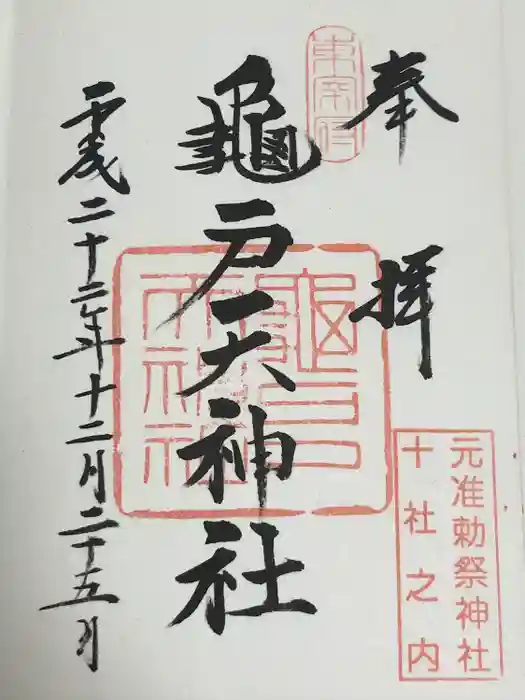 奉拝
東宰府
亀戸天神社
元准勅祭神社
十社之内
龜戸天神社
平成二十二年十二月二十五日